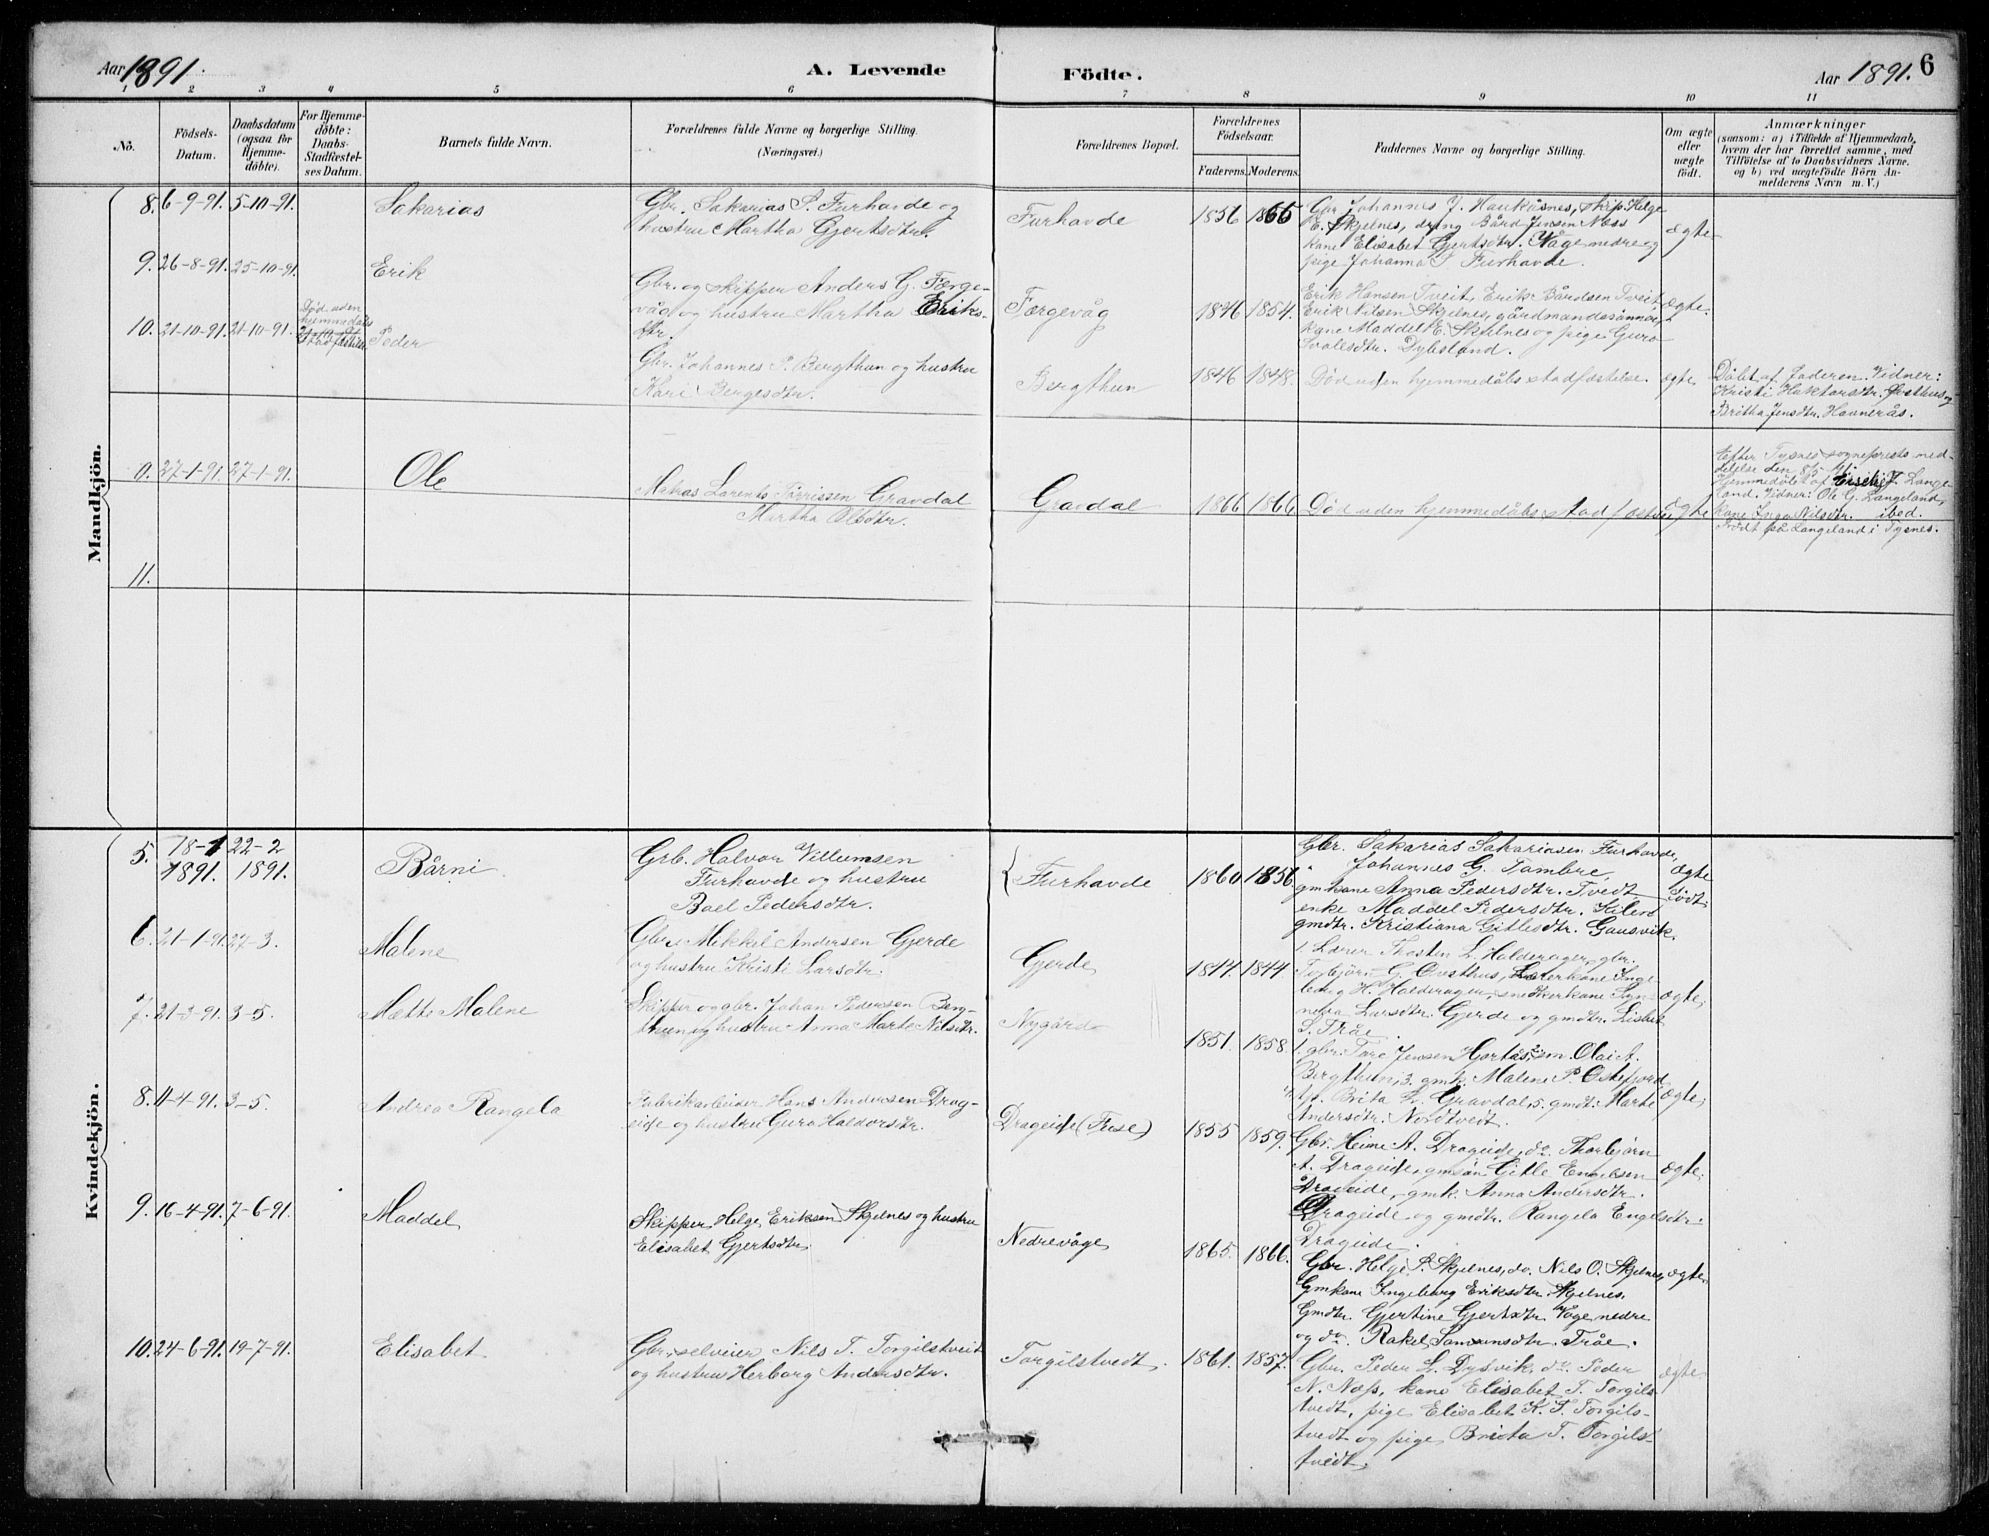 Aar 1891.
A. Levende
Födte.
Aar 1891. 6
1 2 3 4 5 6 7 8 9 10 11
No.
Födsels-
Datum.
Daabsdatum
(ogsaa for
Hjemme-
døbte).
For Hjemme-
døbte:
Daabs-
Stadfæstel-
ses Datum.
Barnets fulde Navn.
Forældrenes fulde Navne og borgerlige Stilling.
(Næringsvei.)
Forældrenes Bopæl.
Forældrenes
Födselsaar.
Faderens. Moderens.
Faddernes Navne og borgerlige Stilling.
Om ægte
eller
uægte
födt.
Anmærkninger
(saasom: a) i Tilfælde af Hjemmedaab,
hvem der har forrettet samme, med
Tilföielse af to Daabsvidners Navne,
og b) ved uægtefödte Börn An-
melderens Navn m. V.)
Mandkjön.
8. 6-9-91. 5-10-91.
Sakarias
Gbr. Sakarias S. Furhavde og
hustru Martha Gjertsdtr.
Furhavde
1856 1865
Gbr Johannes J. Haukåsnes, skip. Helge
E. Skjelnes, dreng Bård Jensen Næss
kane Elisabet Gjertsdtr. Våge nedre og
pige Johanna S Furhavde.
ægte
9. 26-8-91. 25-10-91.
Erik
Gbr. og skipper Anders G. Færge-
våg og hustru Martha Eriks-
dtr.
Færgevåg
1846 1854.
Erik Hansen Tveit, Erik Bårdsen Tveit,
Erik Nilsen Skjelnes, gårdmandssønner,
kane Maddel E. Skjelnes og pige Guro
Dybsland.
ægte.
10. 21-10-91. 21-10-91.
Død uden
hjemmedåbs
Peder
Gbr. Johannes P. Bergthun og hustru
Kari Bergesdtr.
Bergthun
1846 1848.
Død uden hjemmedåbsstadfæstelse.
ægte
Døbt af faderen. Vidner:
Kristi Haktorsdtr. Østhus og
Britha Jensdtr. Havnerås.
0. 27-1-91. 27-1-91.
Ole
Matias Larents Tørrissen Gravdal
Martha Olsdtr.
Gravdal
1866 1866
Død uden hjemmedåbsstadfæstes
Egte
Efter Tysnes sogneprests med-
delelse den 8/5-91
Hjemmedøbt af J. Lange-
land. Vidner: Ole G. Langeland,
kane Inga Nilsdtr. ibed.
Født på Langeland i Tysnes.
11.
Kvindekjön.
5. 18-1 22-2
1891. 1891.
Bårni
Grb. Halvor Villumsen
Furhavde og hustru
Bael Pedersdtr.
Furhavde
1860 1856
Gbr. Sakarias Sakariasen Furhavde,
" Johannes G. Tambre,
gmkane Anna Pedersdtr. Tvedt
enke Maddel Pedersdtr. Kilen
gmdtr. Kristiana Gitlesdtr. Gausvik.
ægte
født.
6. 21-1-91. 27-3.
Malene
Gbr. Mikkel Andersen Gjerde
og hustru Kristi Larsdtr.
Gjerde
1847. 1844
1. Lærer Thosten L. Halderager, gbr.
Torbjørn G. Lærerkane Inge-
borg H. Halderager, snedkerkane Syn-
neva Larsdtr. Gjerde og gmdtr. Lisbet
S. Tråe
ægte;
7. 21-3-91. 3-5.
Mætte Malene
Skipper og gbr. Johan Pedersen Berg-
thun og hustru Anna Marte Nilsdtr.
Nygård
1851. 1858.
1. gbr. Tore Jensen Hortås, 2 sm. Olai A.
Bergthun, 3. gmk. Malene P. Ostefjord
4. Brita L. Gravdal, 5. gmdt. Marte
Andersdtr. Nordtvedt.
ægte;
8. 11-4-91. 3-5.
Andrea Rangela
Fabrikarbeider Hans Andersen Drag-
eide og hustru Guro Haldorsdtr.
Drageide (Fuse)
1855 1859.
Gbr. Heine A. Drageide, do. Thorbjørn
A. Drageide, gmsøn Gitle Engelsen
Drageide, gmk. Anna Andersdtr.
Drageide og gmdtr. Rangela Engelsdtr.
Drageide.
ægte.
9. 16-4-91. 7-6-91.
Maddel
Skipper Helge Eriksen Skjelnes og hustru
Elisabet Gjertsdtr.
Nedrevåge
1865. 1866.
Gbr. Helge P. Skjelnes, do. Nils O. Skjelnes,
Gmkane Ingeborg Eriksdtr. Skjelnes.
Gmdtr. Gjertine Gjertsdtr. Våge nedre
og do. Rakel Samsonsdtr. Tråe.
ægte.
10. 24-6-91. 19-7-91.
Elisabet
Gbr. selveier Nils T. Torgilstveit
og hustru Herborg Andersdtr.
Torgilstvedt.
1861. 1857.
Gbr. Peder L. Dysvik, do. Peder
N. Næss, kane Elisabet T. Torgils-
tvedt, pige Elisabet K. T. Torgils-
tvedt og pige Brita T. Torgils-
tvedt.
ægte